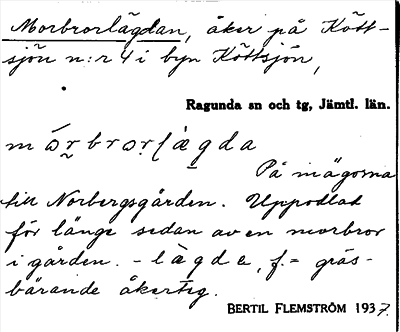 Morbrorlägdan, åker på Kött-
sjön n:r 4 i byn Köttsjön,
Ragunda sn och tg, Jämtl. län.
På inägorna
till Norbergsgården. Uppodlat
för länge sedan av en morbror
i gården. - lägde, f. = gräs-
bärande åkerteg.
BERTIL FLEMSTRÖM 1937.